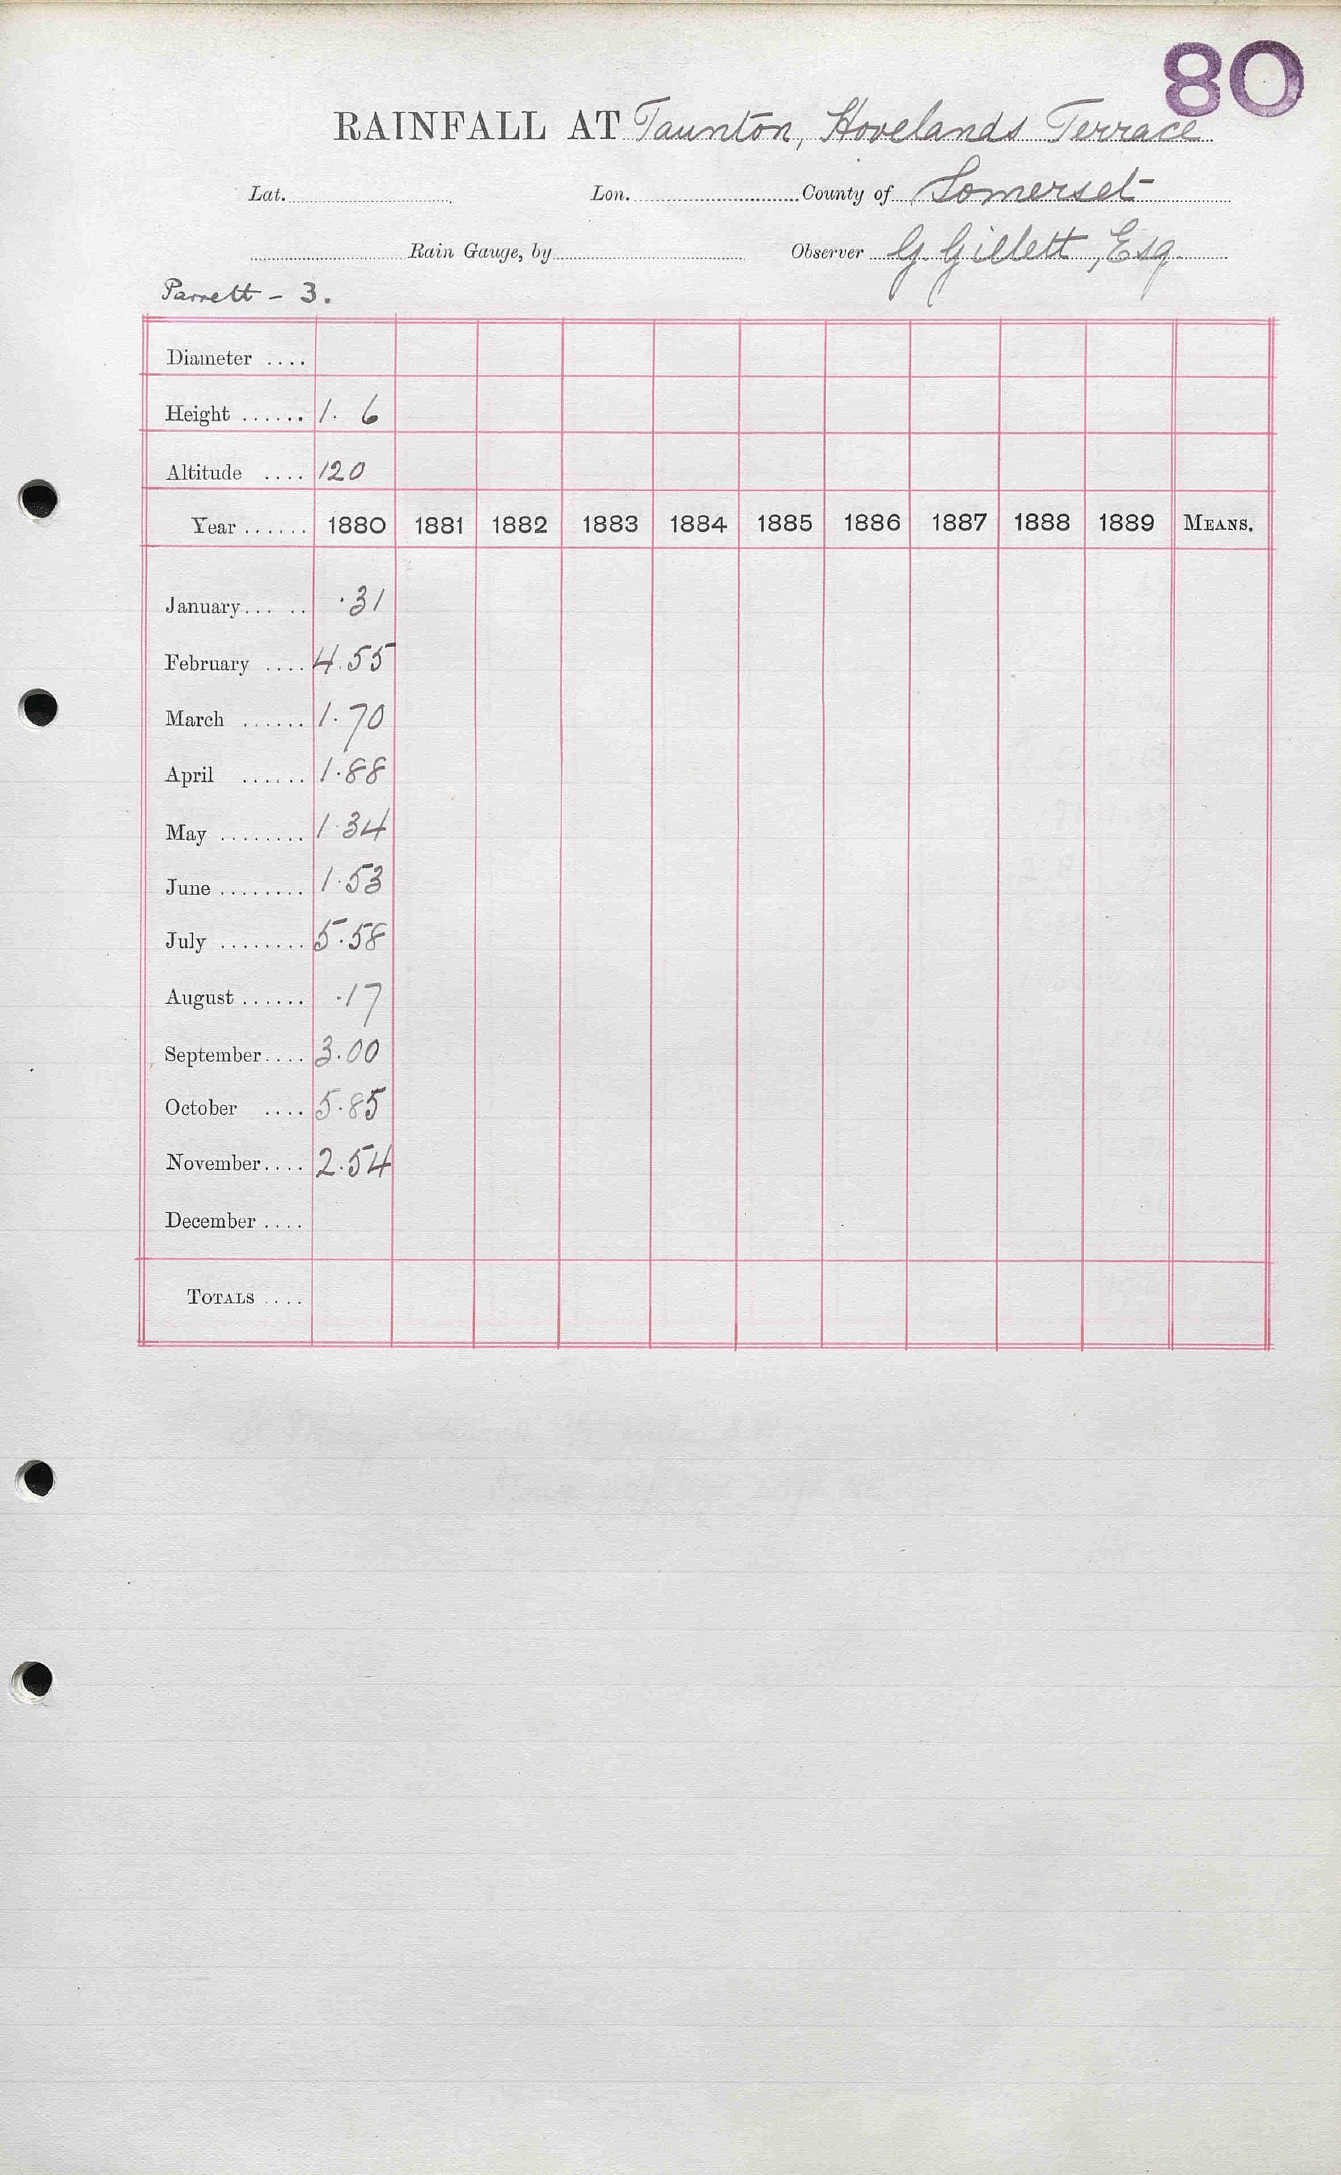 80
RAINFALL AT Taunton, Hovelands Terrace
Lat. Lon. County of Somerset
Rain Gauge, by Observer G Gillett, Esq.
Parrett - 3.
Diameter ....
Height ...... 1. 6
Altitude .... 120
Year ...... 1880 1881 1882 1883 1884 1885 1886 1887 1888 1889 MEANS.
January... .. .31
February .... 4.55
March ...... 1.70
April ...... 1.88
May ........ 1.34
June ........ 1.53
July ........ 5.58
August ...... .17
September.... 3.00
October .... 5.85
November.... 2.54
December ....
TOTALS ....